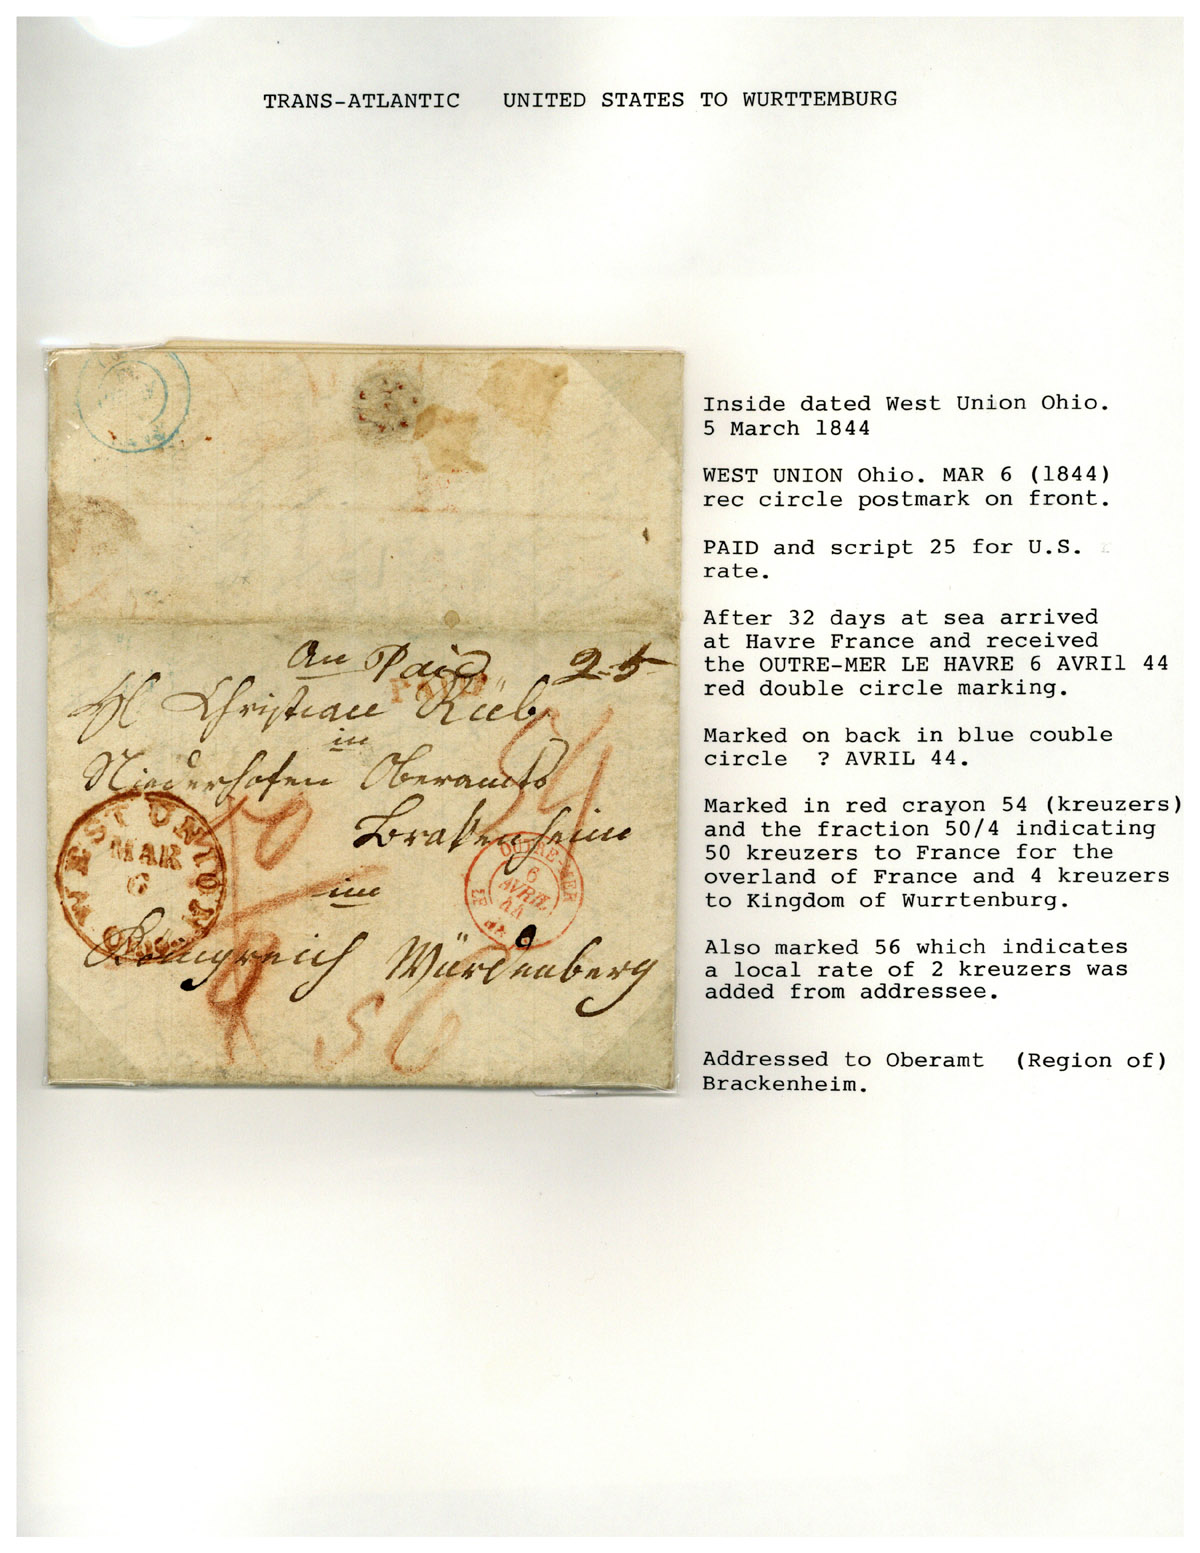 TRANS-ATLANTIC UNITED STATES TO WURTTEMBURG
An Paid 25
PAID
Christian Rieb
in
Niederhofen Oberamts
54
50
4
Brakenheim
im
Königreich Würdenberg
56
WEST UNION
MAR
6
OUTRE-MER
6
AVRIL
44
LE
Inside dated West Union Ohio.
5 March 1844
WEST UNION Ohio. MAR 6 (1844)
rec circle postmark on front.
PAID and script 25 for U.S.
rate.
After 32 days at sea arrived
at Havre France and received
the OUTRE-MER LE HAVRE 6 AVRIl 44
red double circle marking.
Marked on back in blue couble
circle ? AVRIL 44.
Marked in red crayon 54 (kreuzers)
and the fraction 50/4 indicating
50 kreuzers to France for the
overland of France and 4 kreuzers
to Kingdom of Wurrtenburg.
Also marked 56 which indicates
a local rate of 2 kreuzers was
added from addressee.
Addressed to Oberamt (Region of)
Brackenheim.